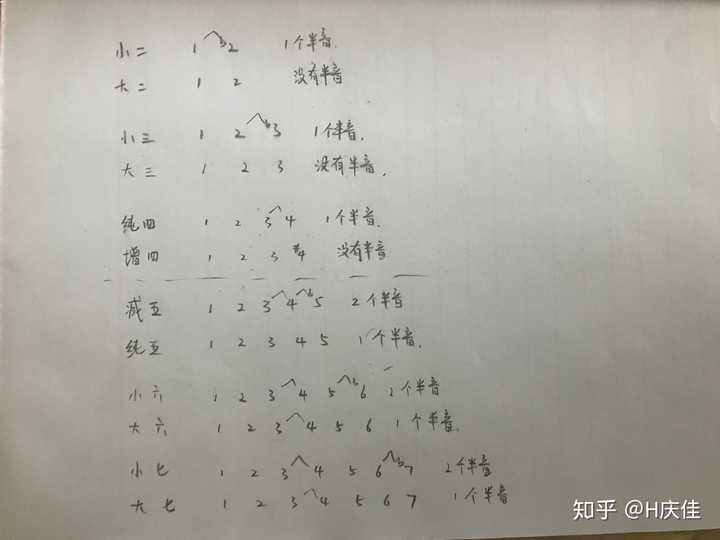 小二 1 b2 1个半音.
大二 1 2 没有半音
小三 1 2 b3 1个半音.
大三 1 2 3 没有半音.
纯四 1 2 3 4 1个半音.
增四 1 2 3 #4 没有半音
减五 1 2 3 4 b5 2个半音
纯五 1 2 3 4 5 1个半音.
小六 1 2 3 4 5 b6 2个半音
大六 1 2 3 4 5 6 1个半音.
小七 1 2 3 4 5 6 b7 2个半音
大七 1 2 3 4 5 6 7 1个半音
知乎 @H庆佳